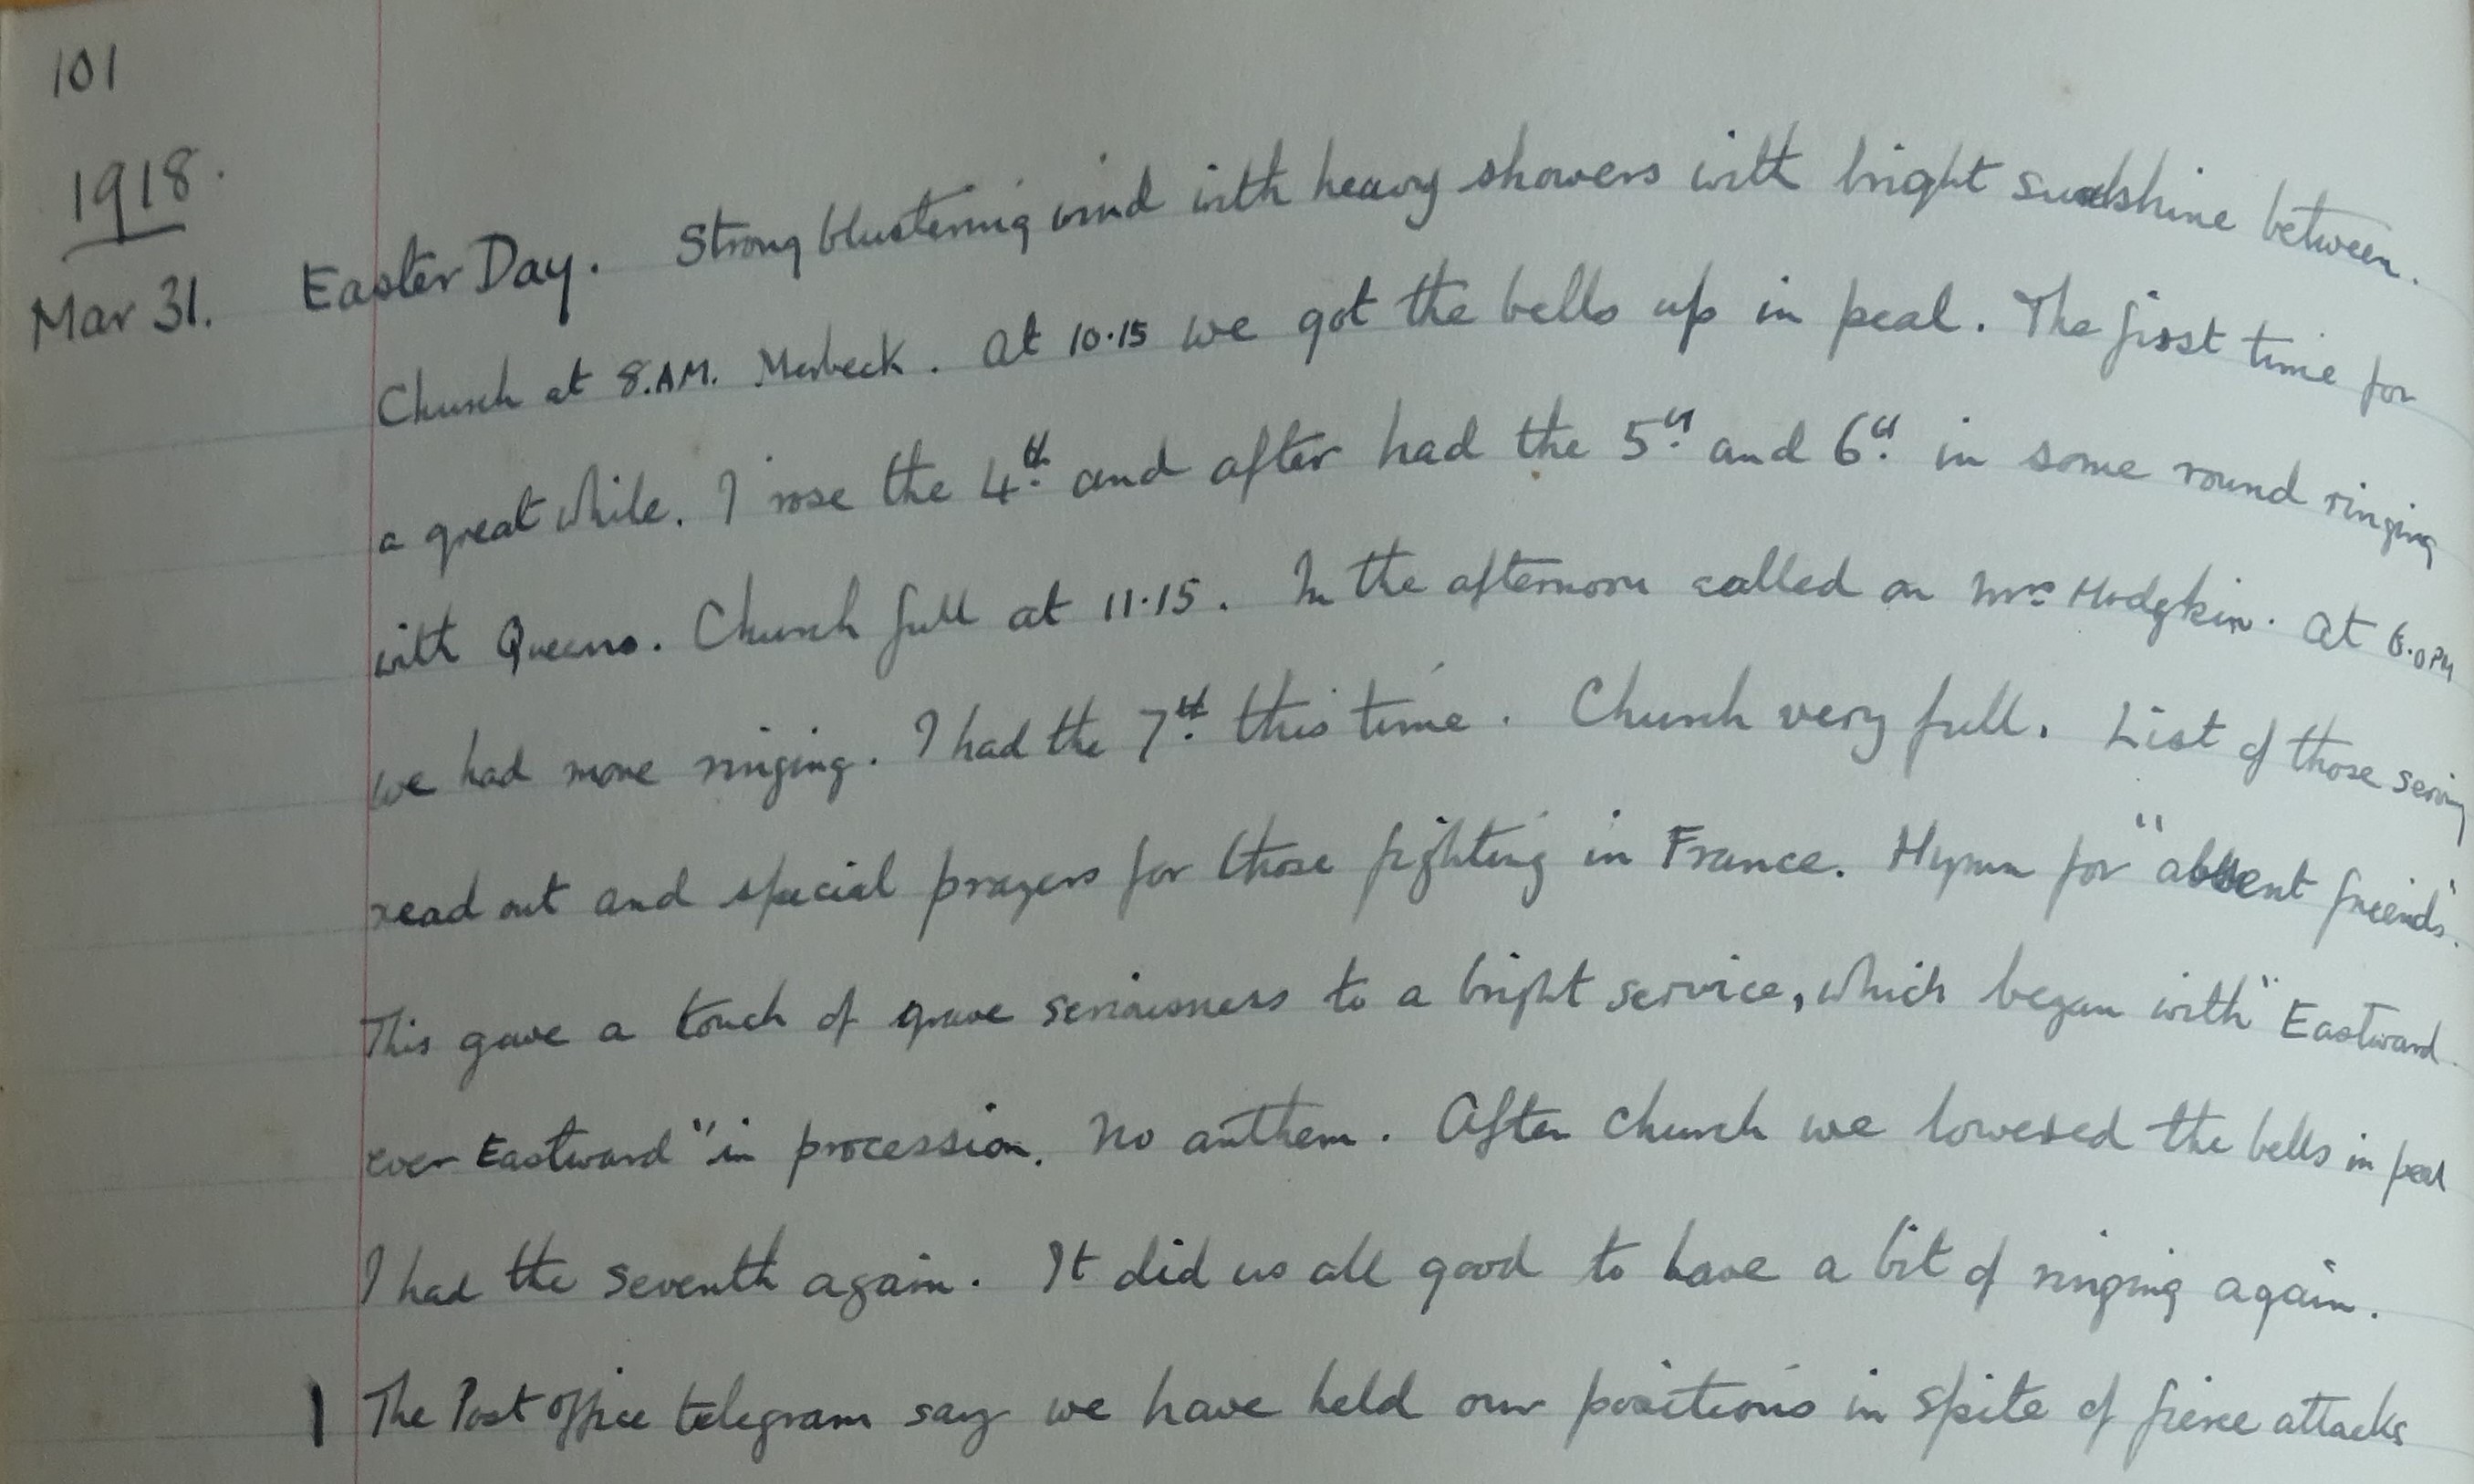 101
1918.
Mar 31. Easter Day. Strong blustering wind with heavy showers with bright sunshine between.
Church at 8.AM. Merbeck. At 10.15 we got the bells up in peal. The first time for
a great while. I rose the 4th and after had the 5th and 6th in some round ringing
with Queens. Church full at 11.15. In the afternoon called on Mrs Hodgkin. At 6.0 PM
we had more ringing. I had the 7th this time. Church very full. List of those serving
read out and special prayers for those fighting in France. Hymn for "absent friends".
This gave a touch of grave seriousness to a bright service, which began with "Eastward
ever Eastward" in procession. No anthem. After church we lowered the bells in peal
I had the seventh again. It did us all good to have a bit of ringing again.
The Post office telegram say we have held our positions in spite of fierce attacks